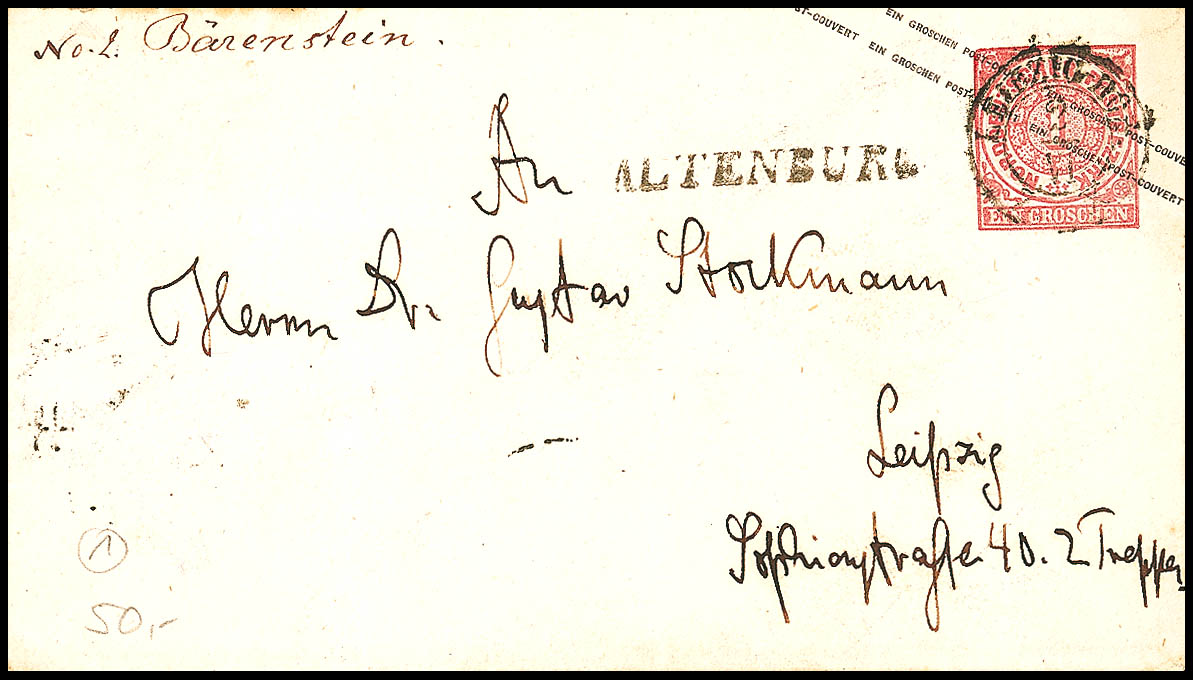 No. 2. Bärenstein.
EIN GROSCHEN POST-COUVERT
POST-COUVERT EIN GROSCHEN POST-COUVERT
EIN GROSCHEN POST-COUVERT
EIN GROSCHEN POST-COUVERT
EIN GROSCHEN
An
ALTENBURG
Herrn Dr. Gustav Stockmann
Leipzig
Sophienstraße 40. 2 Treppen
1
50,-